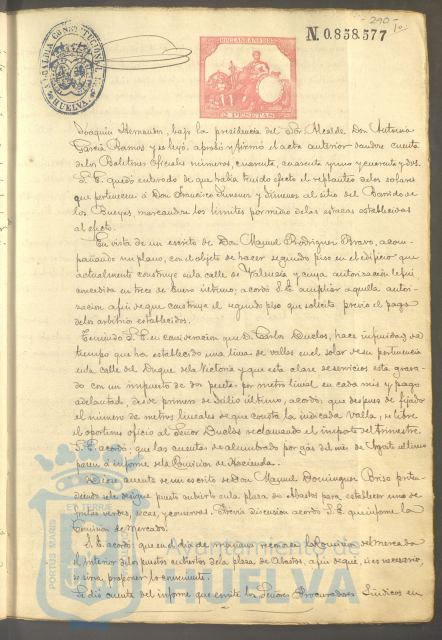 290
N. 0.858.577
ALCALDIA CONSTITUCIONAL
HUELVA
2 PESETAS
Joaquin Hernandez, bajo la presidencia del Sor. Alcalde Don Antonio
Garcia Ramos y se leyó, aprobó y firmó el acta anterior dandose cuenta
de los Boletines Oficiales números, cuarenta, cuarenta y uno y cuarenta y dos.
S. E. quedó enterado de que habia tenido efecto el replanteo de los solares
que pertenecen á Don Francisco Jimenez y Jimenez al sitio del Barrido de
los Bueyes, marcandose los limites por medio de las estacas establecidas
al efecto.
En vista de un escrito de Don Manuel Rodriguez Bravo, acom-
pañando un plano, con el objeto de hacer segundo piso en el edificio que
actualmente construye en la calle de Valencia y cuya autorizacion le fué
concedida en trece de Enero último, acordó S. E. ampliar aquella autori-
zacion á fin de que construya el segundo piso que solicita previo el pago
de los arbitrios establecidos.
Teniendo S. E. en consideracion que D. Carlos Duclos, hace infinidad de
tiempo que ha establecido una linea de vallas en el solar de su pertenencia
en la calle del Duque de la Victoria y que esta clase de servicios esta grava-
do con un impuesto de dos pesetas por metro lineal en cada mes y pago
adelantado, desde primero de Julio último, acordó: que despues de fijado
el número de metros lineales de que consta la indicada valla, se libre
el oportuno oficio al Señor Duclos reclamando el importe del trimestre.
S. E. acordó: que las cuentas de alumbrado por gás del mes de Agosto último
pasen á informe de la Comision de Hacienda.
Diose cuenta de un escrito de Don Manuel Dominguez Borizo preten-
diendo se le designe puesto cubierto en la plaza de Abastos para establecer uno de
frutas verdes, secas, y conservas. Previa discusion acordó S. E. que informe la
Comision de Mercado.
S. E. acordó: que en el dia de mañana reconozca la Comision de Mercado
el interior de los puestos cubiertos de la plaza de Abastos, á fin de que, si es necesario,
se sirva proponer lo conveniente.
Se dió cuenta del informe que emiten los Señores Procuradores Sindicos en
PORTUS MARIS ET TERRAE
Ayuntamiento de
HUELVA